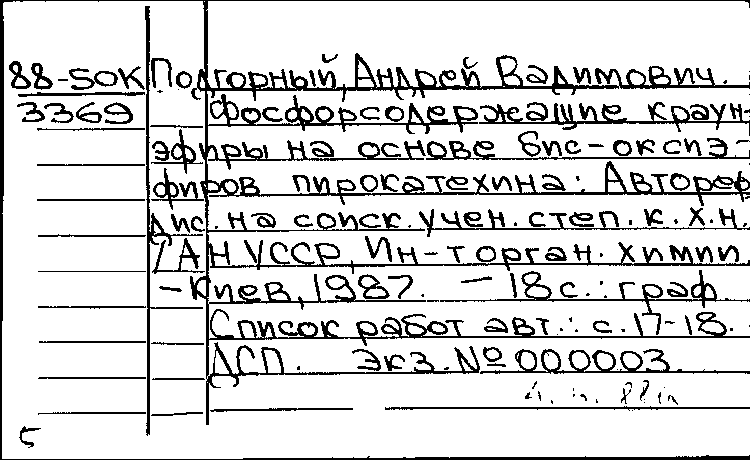 88-5OK Подгорный, Андрей Вадимович.
3369 Фосфорсодержащие краун-
эфиры на основе бис-оксиэ-
фиров пирокатехина: Автореф
дис. на соиск. учен. степ. к.х.н.
/ АН УССР, Ин-т орган. химии.
- Киев, 1987. - 18 с.: граф.
Список работ авт.: с. 17-18.
ДСП. Экз. № 000003.